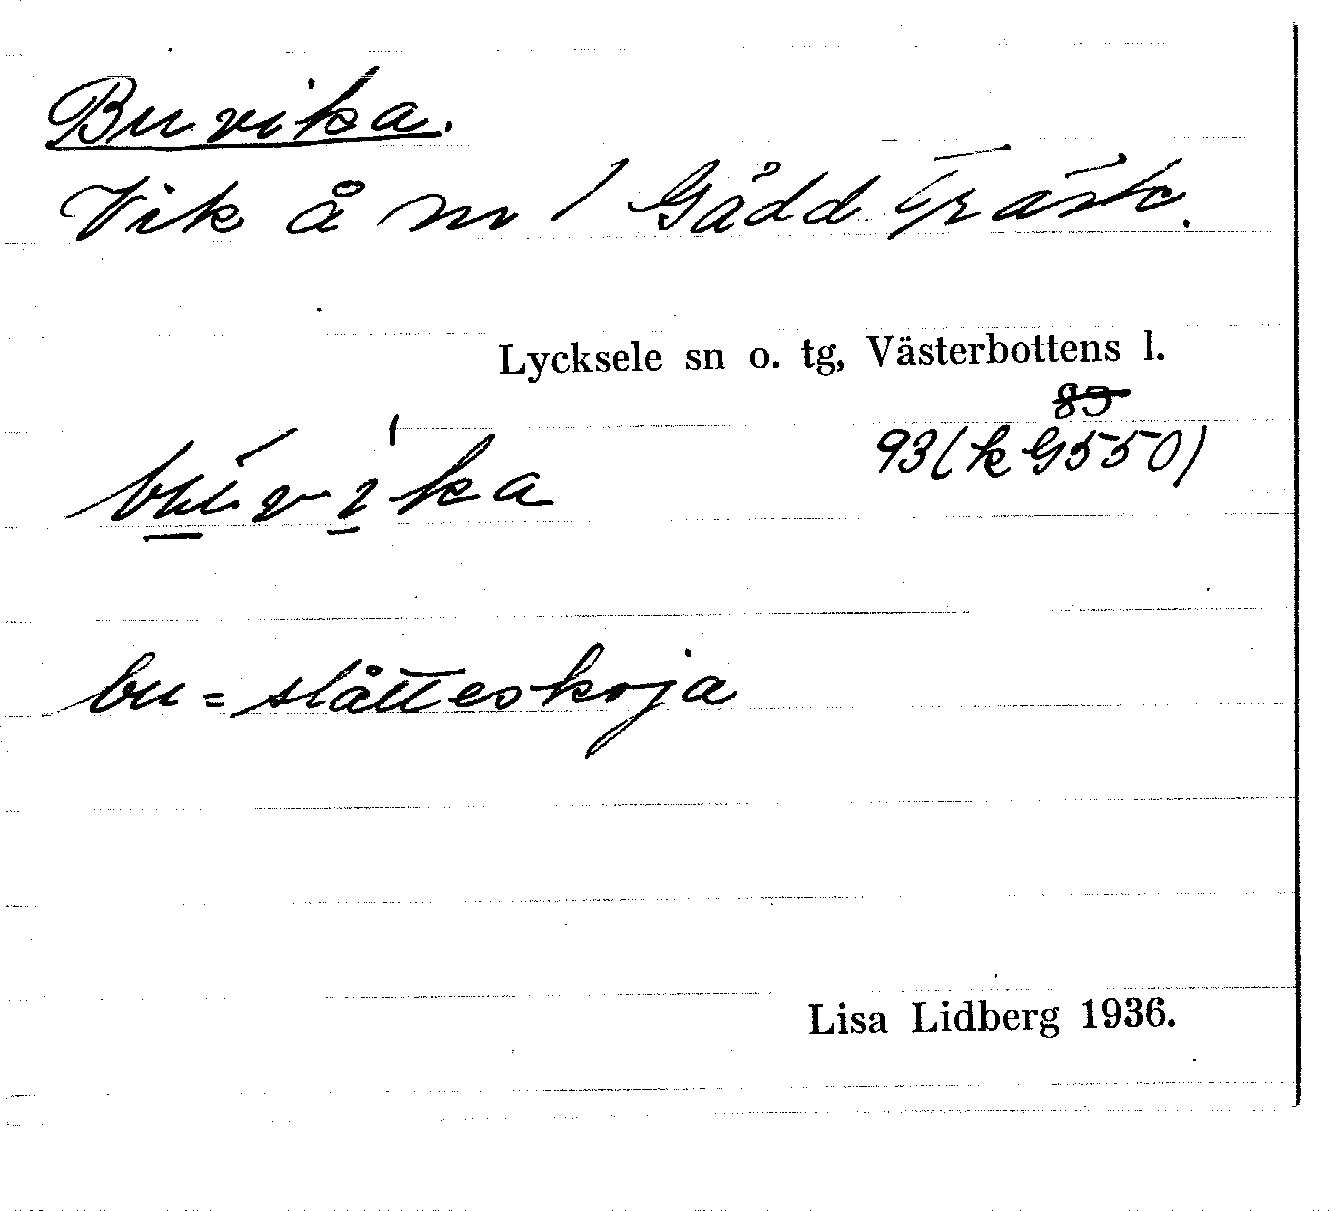 Buvika.
Vik å nr 1 Gäddträsk.
Lycksele sn o. tg, Västerbottens l.
85
93 (k G550)
bu = slåtteskoja
Lisa Lidberg 1936.